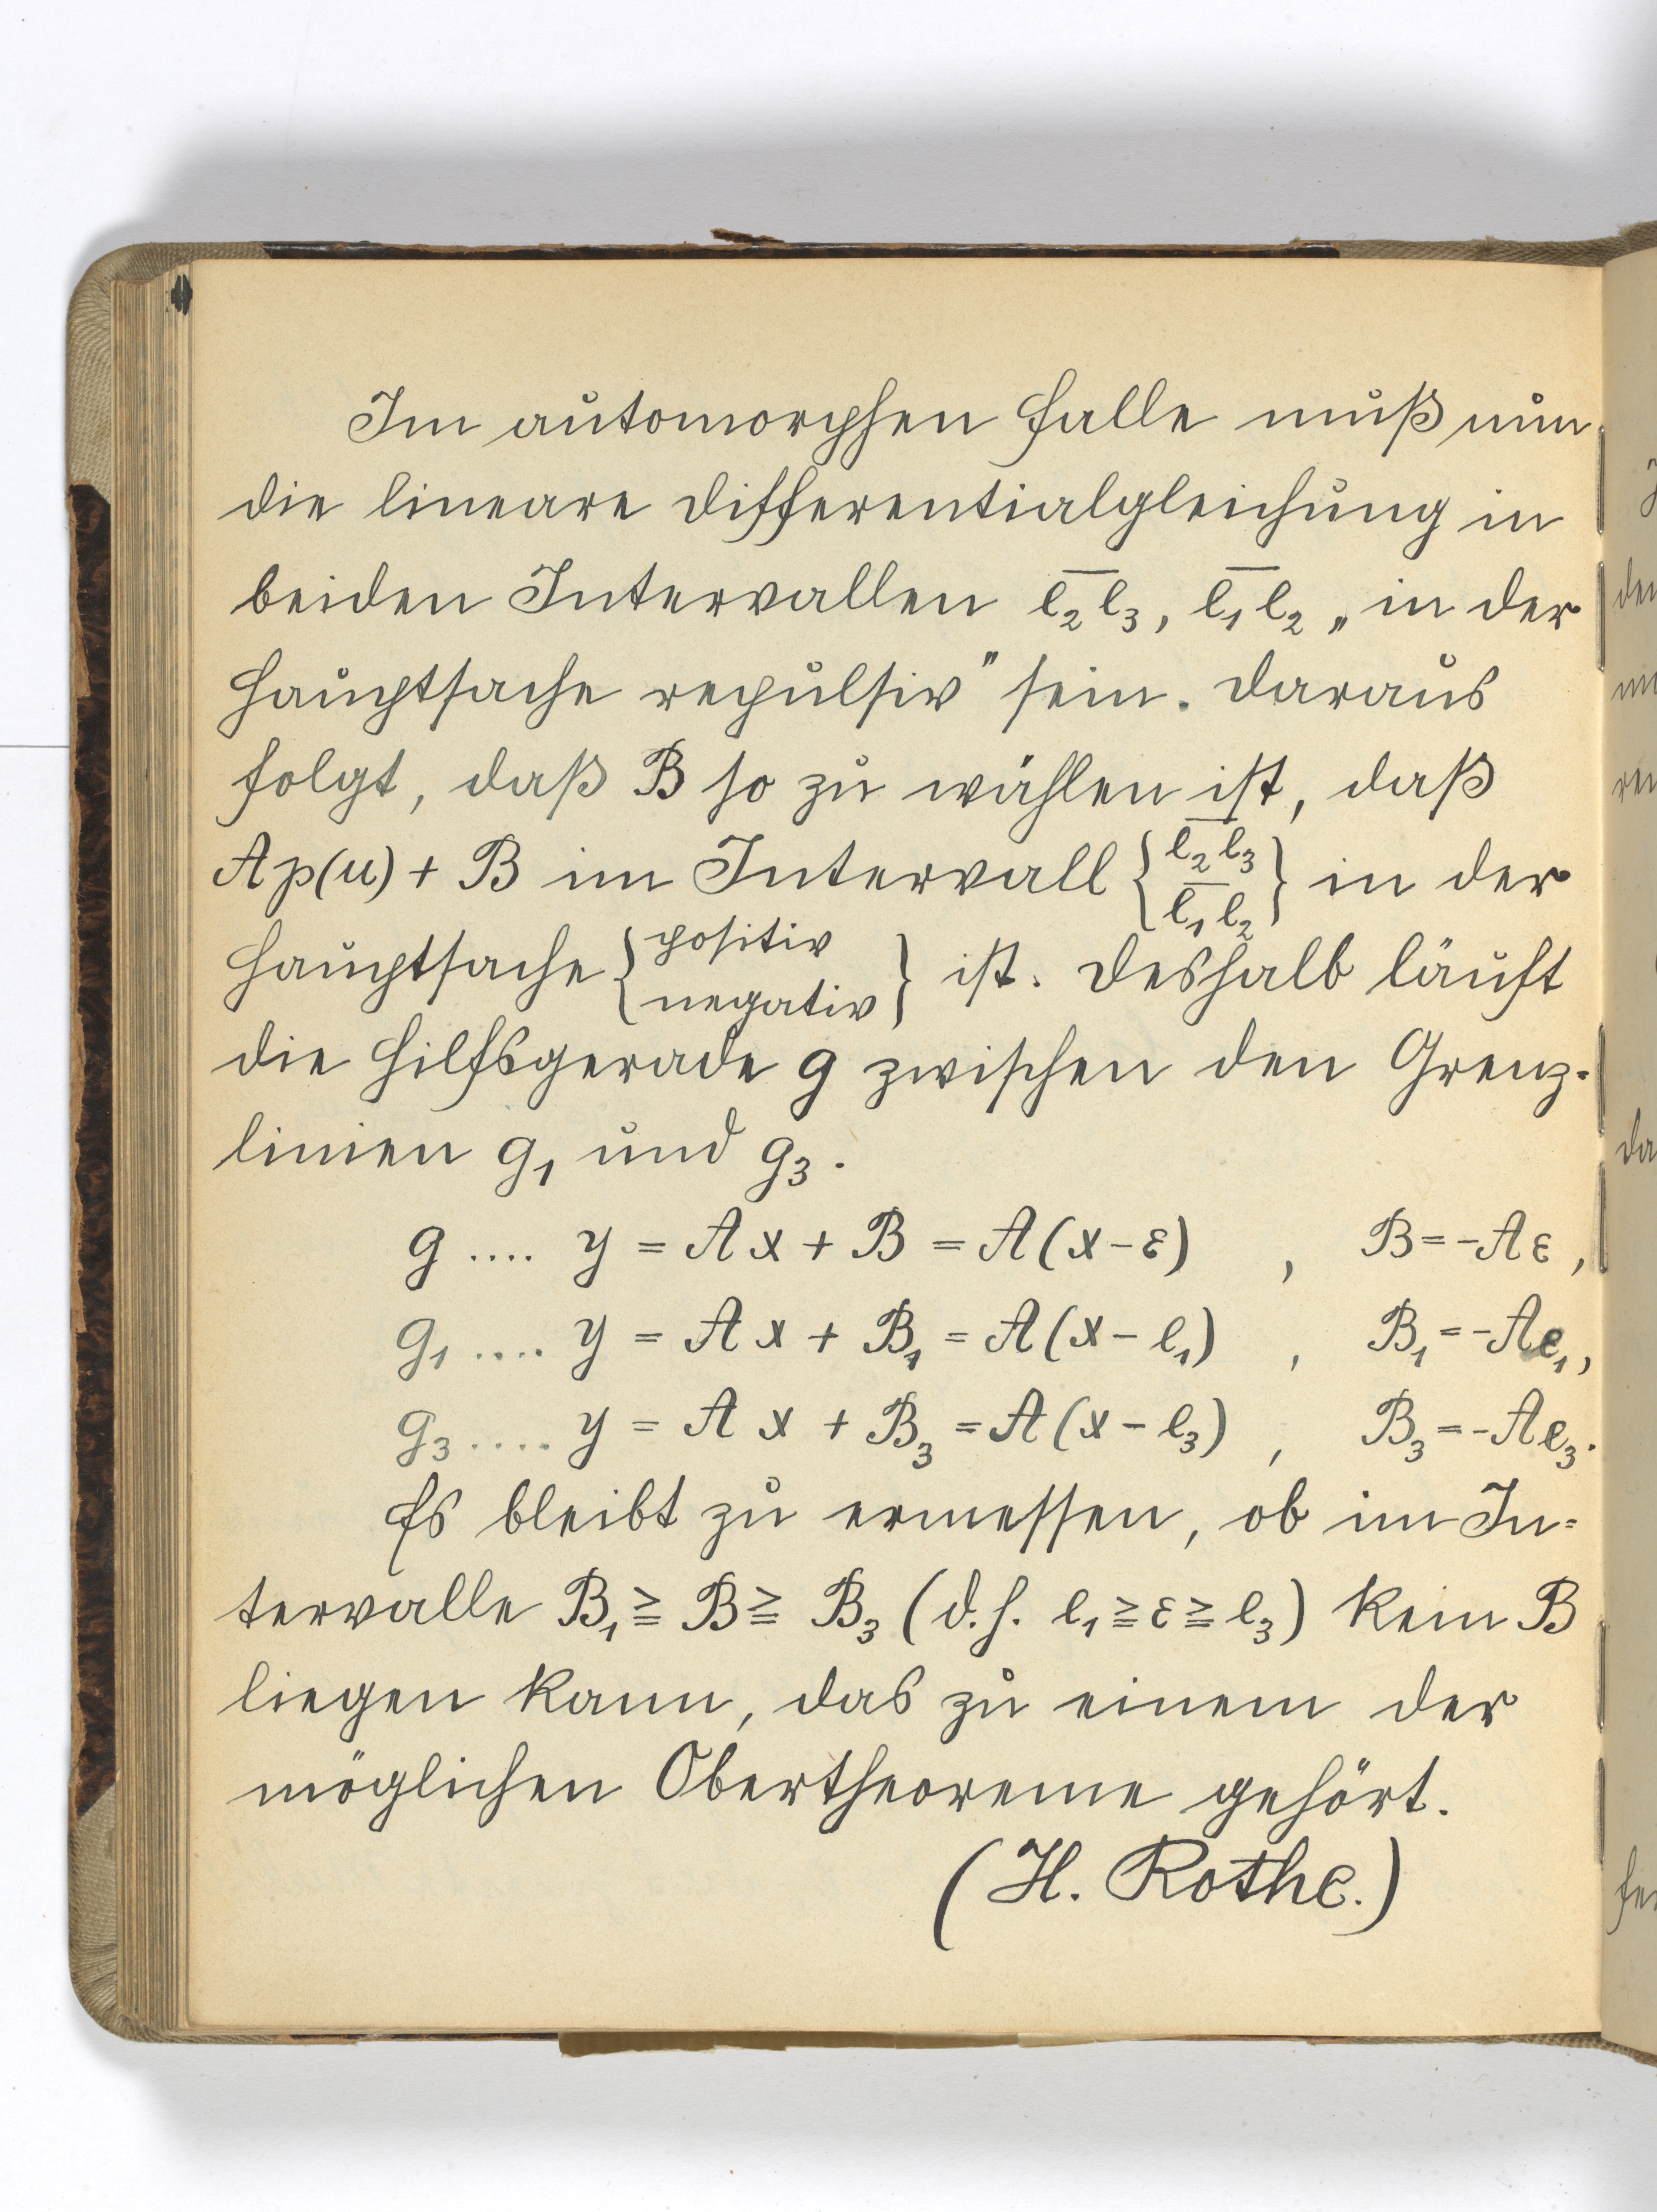 Im automorphen Falle muß nun
die lineare Differentialgleichung in
beiden Intervallen e̅₂e̅₃, e̅₁e̅₂ „in der
Hauptsache repulsiv" sein. Daraus
folgt, daß B so zu wählen ist, daß
A p(u) + B im Intervall { e̅₂e̅₃ / e̅₁e̅₂ } in der
Hauptsache { positiv / negativ } ist. Deshalb läuft
die Hilfsgerade g zwischen den Grenz-
linien g₁ und g₃.
g .... y = A x + B = A(x - ε) , B = -A ε,
g₁ .... y = A x + B₁ = A(x - e₁) , B₁ = -A e₁,
g₃ ..... y = A x + B₃ = A(x - e₃) , B₃ = -A e₃.
Es bleibt zu ermessen, ob im In=
tervalle B₁ ≧ B ≧ B₃ (d.h. e₁ ≧ ε ≧ e₃) kein B
liegen kann, das zu einem der
möglichen Obertheoreme gehört.
(H. Rothe.)